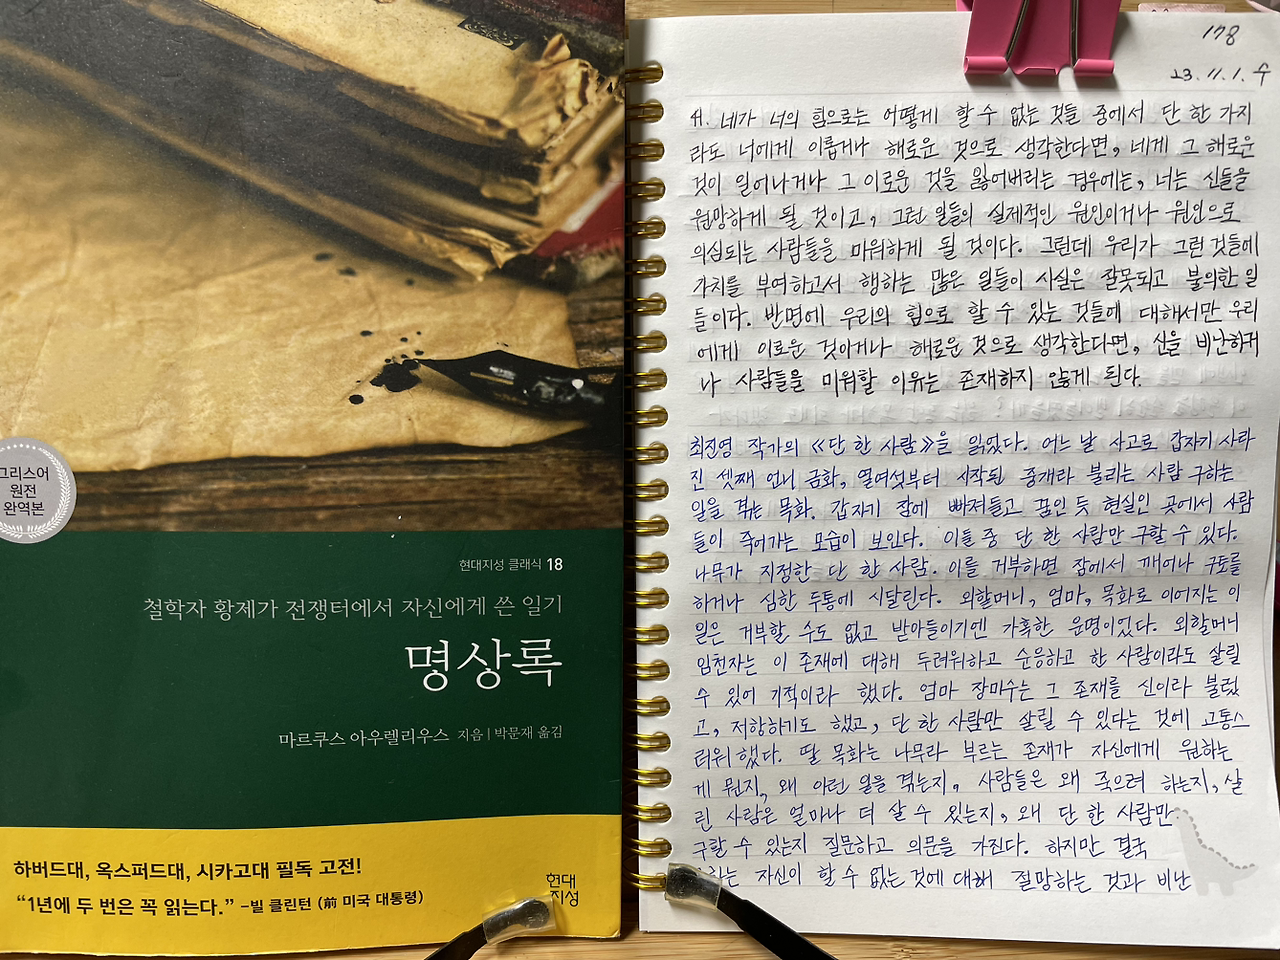 그리스어
원전
완역본
현대지성 클래식 18
철학자 황제가 전쟁터에서 자신에게 쓴 일기
명상록
마르쿠스 아우렐리우스 지음 | 박문재 옮김
하버드대, 옥스퍼드대, 시카고대 필독 고전!
“1년에 두 번은 꼭 읽는다.” –빌 클린턴 (前 미국 대통령)
현대
지성
178
23. 11. 1. 수
41. 네가 너의 힘으로는 어떻게 할 수 없는 것들 중에서 단 한 가지
라도 너에게 이롭거나 해로운 것으로 생각한다면, 네게 그 해로운
것이 일어나거나 그 이로운 것을 잃어버리는 경우에는, 너는 신들을
원망하게 될 것이고, 그런 일들의 실제적인 원인이거나 원인으로
의심되는 사람들을 미워하게 될 것이다. 그런데 우리가 그런 것들에
가치를 부여하고서 행하는 많은 일들이 사실은 잘못되고 불의한 일
들이다. 반면에 우리의 힘으로 할 수 있는 것들에 대해서만 우리
에게 이로운 것이거나 해로운 것으로 생각한다면, 신을 비난하거
나 사람들을 미워할 이유는 존재하지 않게 된다.
최진영 작가의 《단 한 사람》을 읽었다. 어느 날 사고로 갑자기 사라
진 셋째 언니 금화, 열여섯부터 시작된 중개라 불리는 사람 구하는
일을 겪는 목화. 갑자기 잠에 빠져들고 꿈인 듯 현실인 곳에서 사람
들이 죽어가는 모습이 보인다. 이들 중 단 한 사람만 구할 수 있다.
나무가 지정한 단 한 사람. 이를 거부하면 잠에서 깨어나 구토를
하거나 심한 두통에 시달린다. 외할머니, 엄마, 목화로 이어지는 이
일은 거부할 수도 없고 받아들이기엔 가혹한 운명이었다. 외할머니
임천자는 이 존재에 대해 두려워하고 순응하고 한 사람이라도 살릴
수 있어 기적이라 했다. 엄마 장미수는 그 존재를 신이라 불렀
고, 저항하기도 했고, 단 한 사람만 살릴 수 있다는 것에 고통스
러워했다. 딸 목화는 나무라 부르는 존재가 자신에게 원하는
게 뭔지, 왜 이런 일을 겪는지, 사람들은 왜 죽으려 하는지, 살
린 사람은 얼마나 더 살 수 있는지, 왜 단 한 사람만
구할 수 있는지 질문하고 의문을 가진다. 하지만 결국
하는 자신이 할 수 없는 것에 대해 절망하는 것과 비난